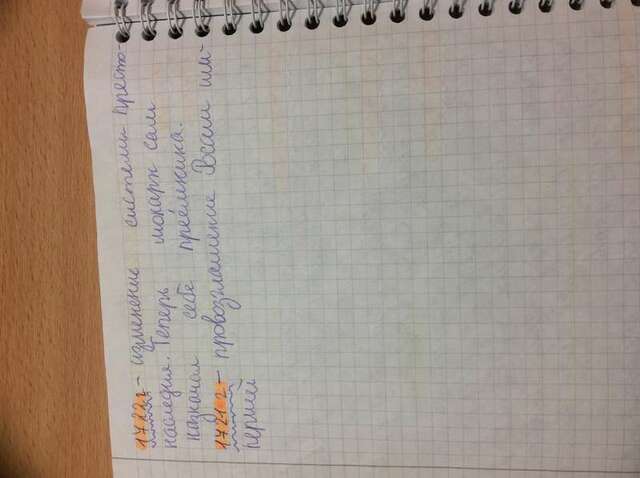 1722г – изменение системы престо-
наследия. Теперь монарх сам
назначал себе приёмника.
1721г – провозглашение России им-
перией